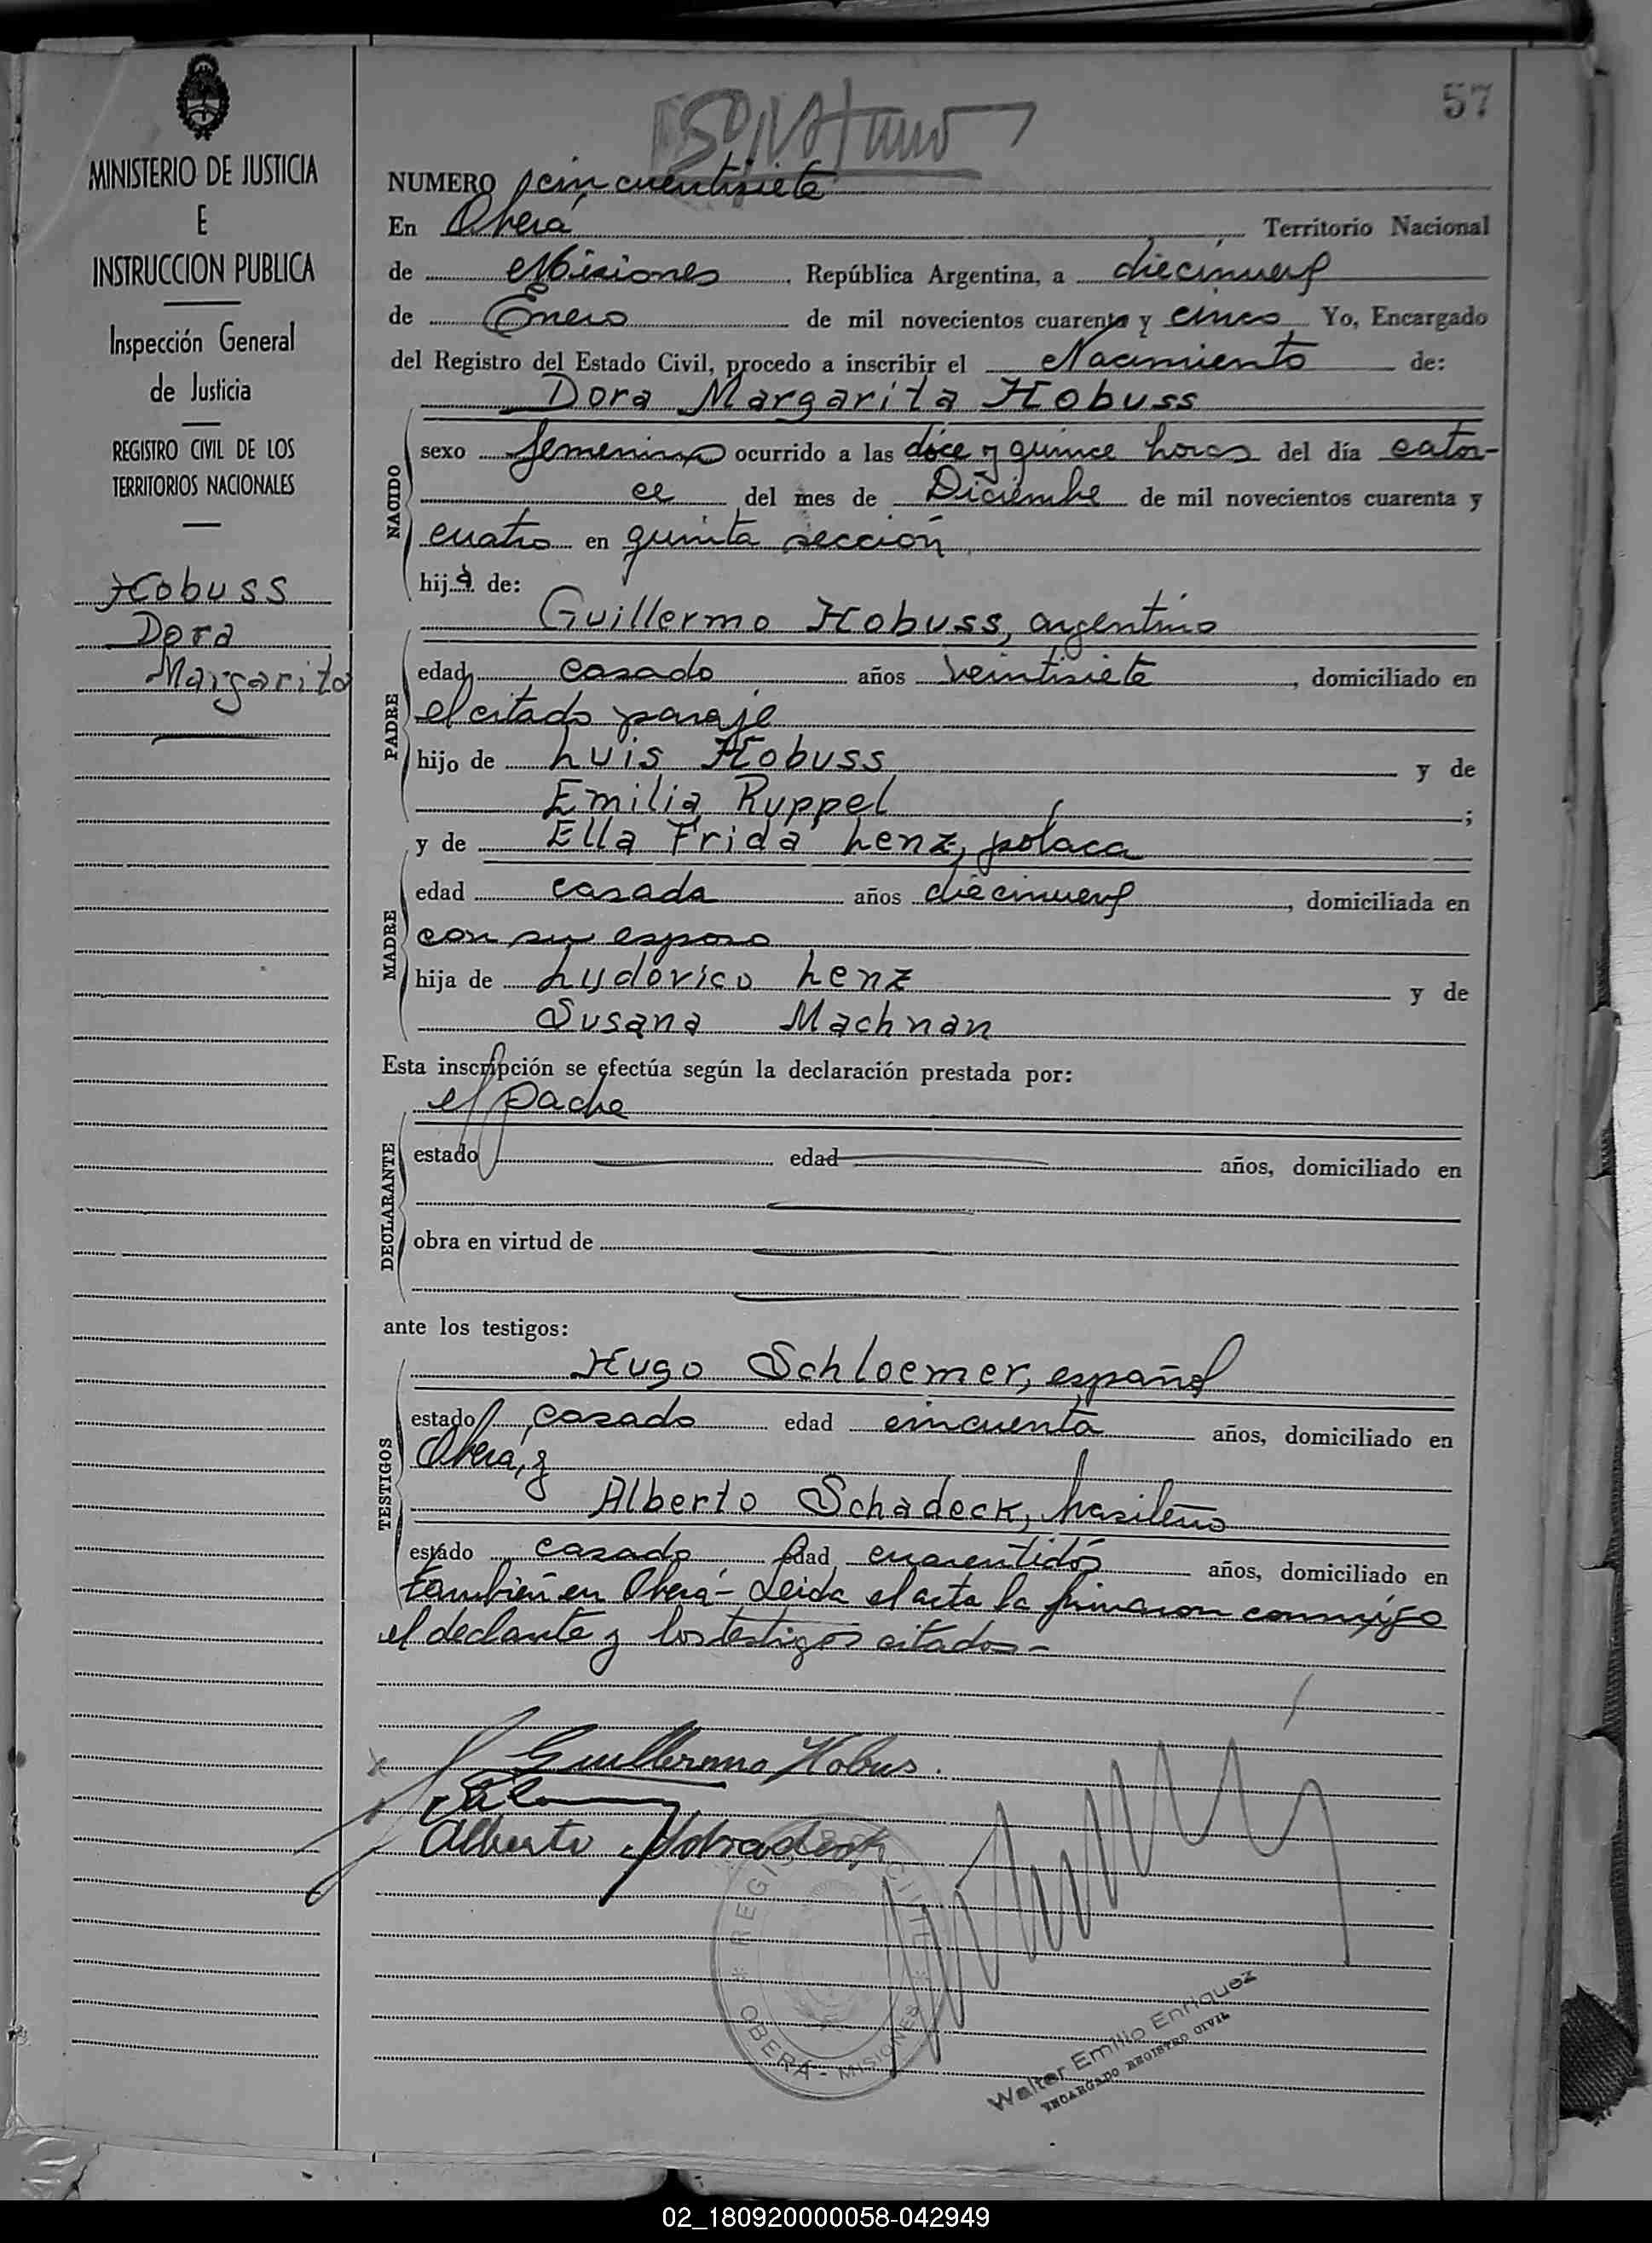 57
MINISTERIO DE JUSTICIA
E
INSTRUCCION PUBLICA
Inspección General
de Justicia
REGISTRO CIVIL DE LOS
TERRITORIOS NACIONALES
Hobuss
Dora
Margarita
NUMERO cincuentisiete
En Oberá, Territorio Nacional
de Misiones, República Argentina, a diecinueve
de Enero de mil novecientos cuarenta y cinco Yo, Encargado
del Registro del Estado Civil, procedo a inscribir el Nacimiento de:
Dora Margarita Hobuss
NACIDO
sexo femenino ocurrido a las doce y quince horas del día cator-
ce del mes de Diciembre de mil novecientos cuarenta y
cuatro en quinta sección
hija de:
Guillermo Hobuss, argentino
PADRE
edad casado años veintisiete, domiciliado en
el citado paraje
hijo de Luis Hobuss y de
Emilia Ruppel;
y de Ella Frida Lenz, polaca
MADRE
edad casada años diecinueve, domiciliada en
con su esposo
hija de Ludovico Lenz y de
Susana Machnan
Esta inscripción se efectúa según la declaración prestada por:
el padre
DECLARANTE
estado edad años, domiciliado en
obra en virtud de
ante los testigos:
Hugo Schloemer, español
TESTIGOS
estado casado edad cincuenta años, domiciliado en
Oberá, y
Alberto Schadeck, brasileño
estado casado edad cuarentidós años, domiciliado en
también en Oberá - Leida el acta la firmaron conmigo
el declante y los testigos citados -
Guillermo Hobus.
Alberto Schadeck
REGISTRO CIVIL
* OBERÁ - MISIONES *
Walter Emilio Enriquez
ENCARGADO REGISTRO CIVIL
02_180920000058-042949